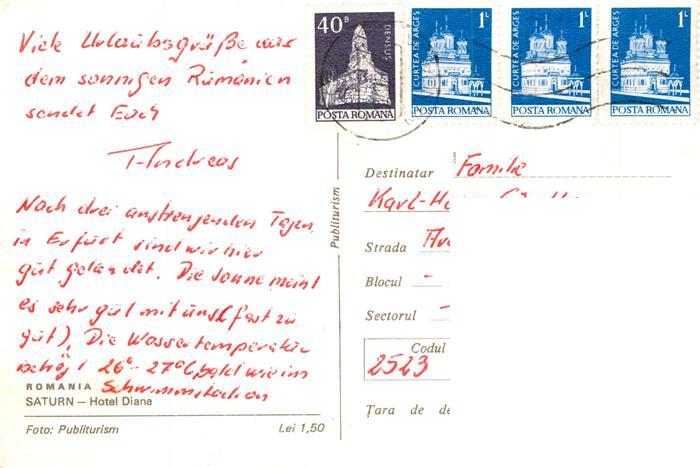 Viele Urlaubsgrüße aus
dem sonnigen Rumänien
sendet Euch
T. Andreas
Nach drei anstrengenden Tagen
in Erfurt sind wir hier
gut gelandet. Die Sonne meint
es sehr gut mit uns (fast zu
gut). Die Wassertemperatur
beträgt 26°-27°C, bald wie im
Schwimmstadion
ROMANIA
SATURN — Hotel Diana
Foto: Publiturism Lei 1,50
Publiturism
40 B
DENSUȘ
POSTA ROMANA
1 L
CURTEA DE ARGEȘ
POSTA ROMANA
1 L
CURTEA DE ARGEȘ
POSTA ROMANA
1 L
CURTEA DE ARGEȘ
POSTA ROMANA
Destinatar Familie
Karl-
Strada
Blocul -
Sectorul -
Codul
2523
Țara de de